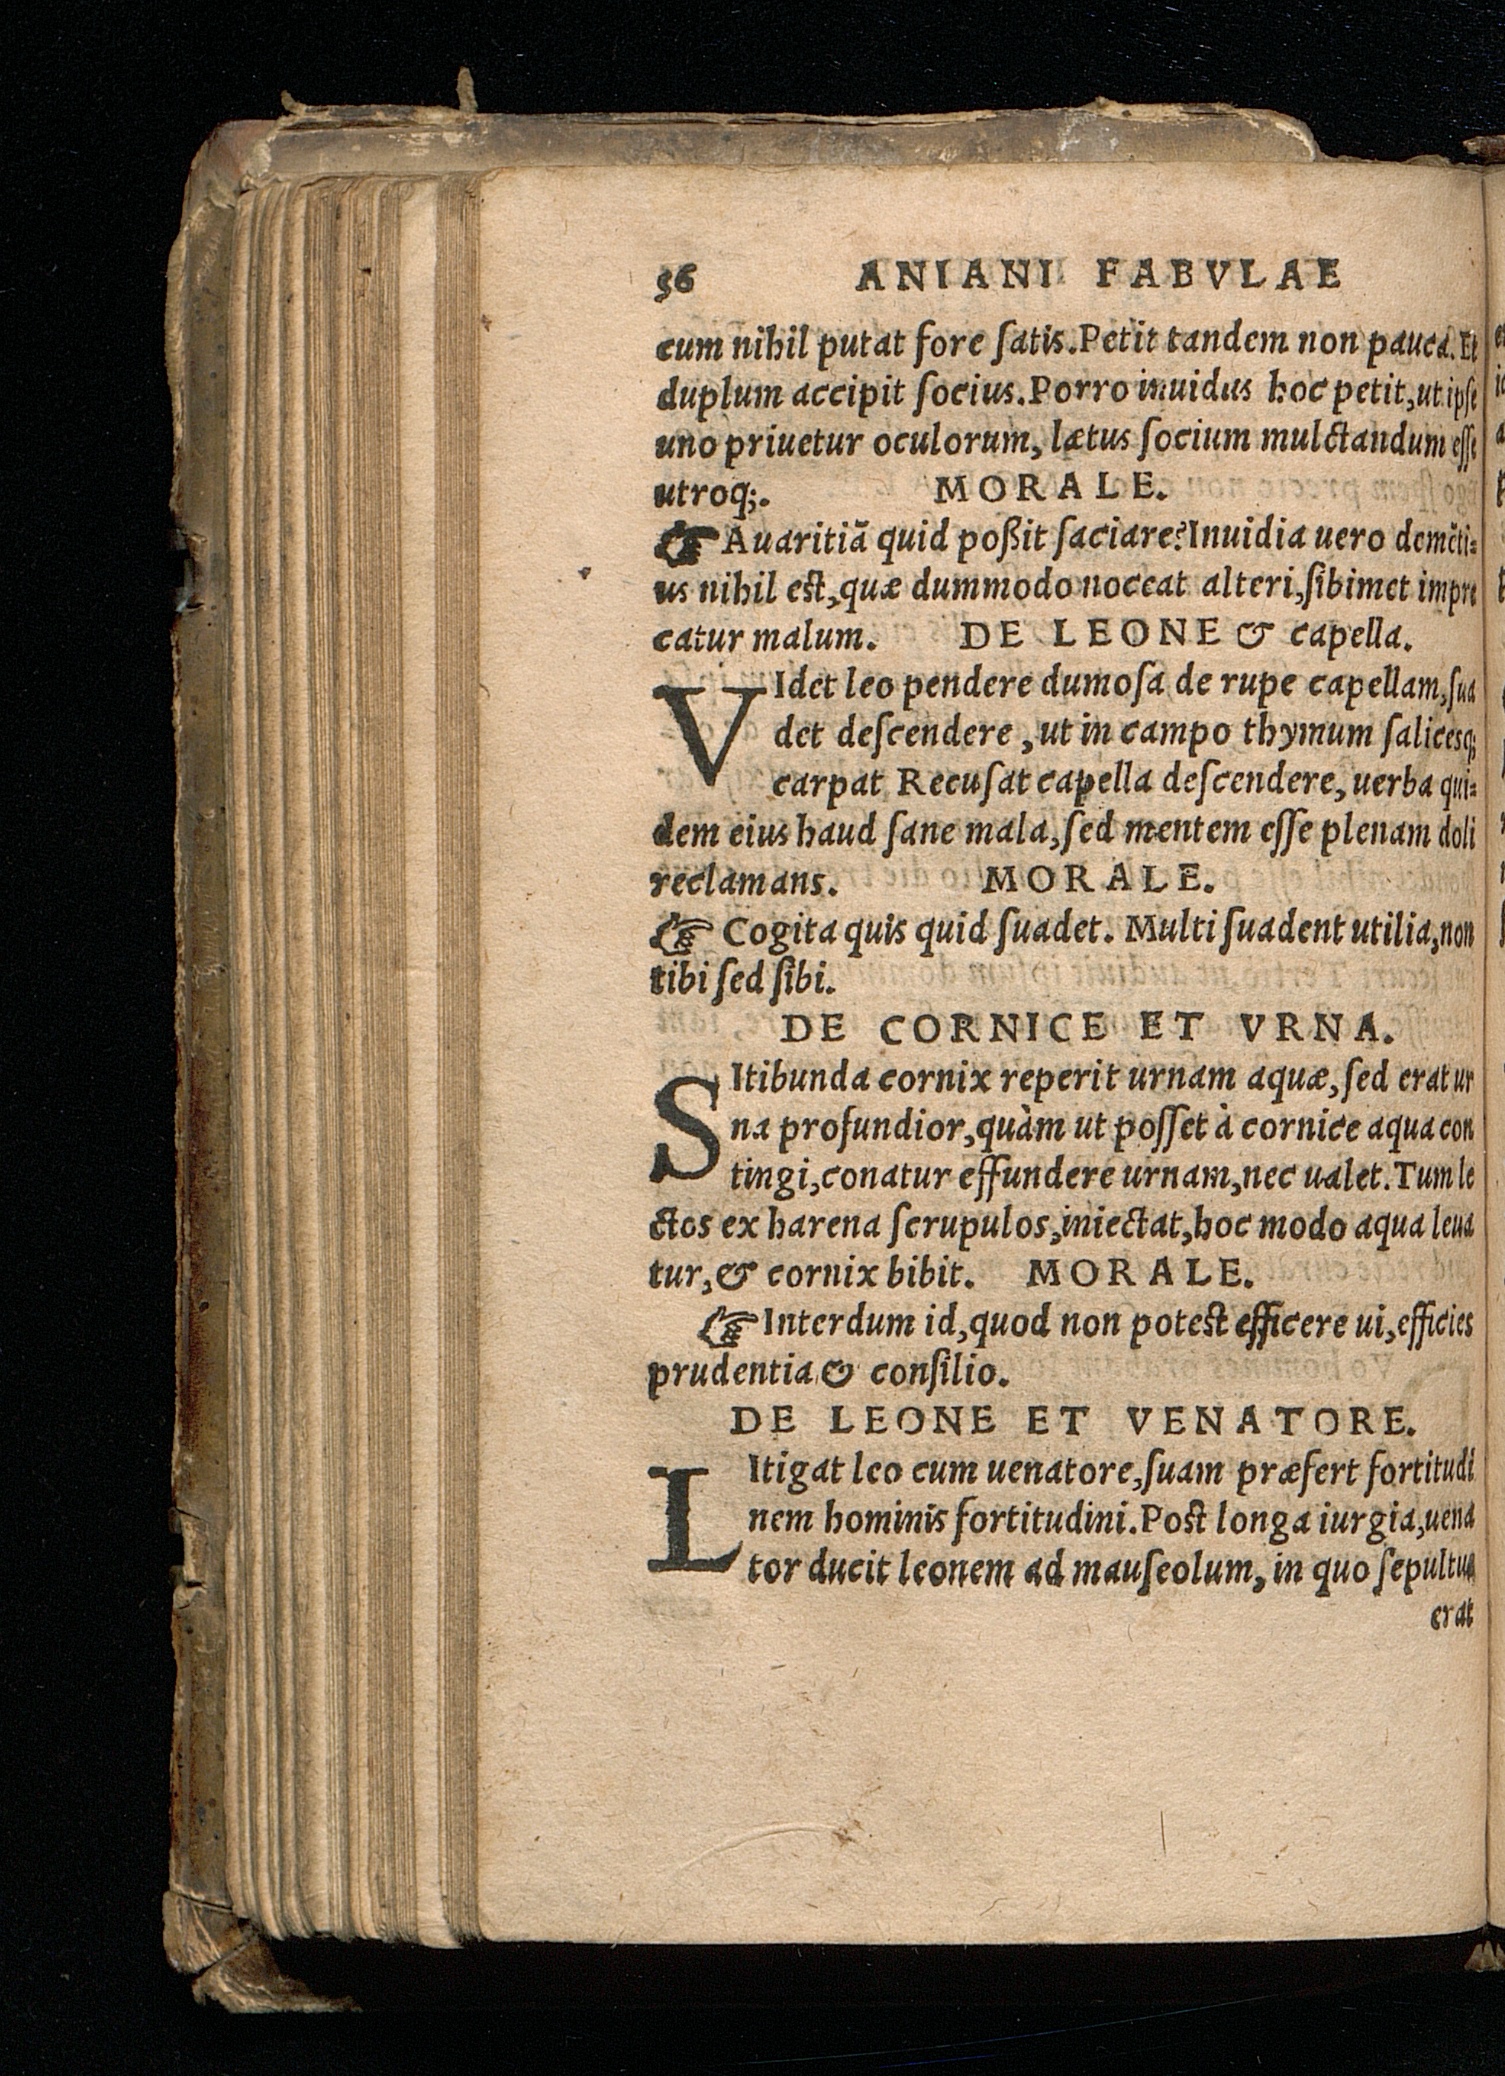 56 ANIANI FABVLAE
cum nihil putat fore ſatis.Petit tandem non pauca. Et
duplum accipit ſocius.Porro inuidus hoc petit,ut ipſe
uno priuetur oculorum, lætus ſocium mulctandum eſſe
utroq;. MORALE.
☞ Auaritiã quid poßit ſaciare?Inuidia uero demẽti=
us nihil est,quæ dummodo noceat alteri,ſibimet impre
catur malum. DE LEONE & capella.
VIdet leo pendere dumoſa de rupe capellam,ſua
det deſcendere, ut in campo thymum ſalicesq;
carpat Recuſat capella deſcendere, uerba qui=
dem eius haud ſane mala,ſed mentem eſſe plenam doli
reclamans. MORALE.
☞ Cogita quis quid ſuadet. Multi ſuadent utilia,non
tibi ſed ſibi.
DE CORNICE ET VRNA.
SItibunda cornix reperit urnam aquæ,ſed erat ur
na profundior,quàm ut poſſet à cornice aqua con
tingi,conatur effundere urnam,nec ualet.Tum le
ctos ex harena ſcrupulos,iniectat,hoc modo aqua leua
tur,& cornix bibit. MORALE.
☞ Interdum id,quod non potest efficere ui,efficies
prudentia & conſilio.
DE LEONE ET VENATORE.
LItigat leo cum uenatore,ſuam præfert fortitudi
nem hominis fortitudini.Post longa iurgia,uena
tor ducit leonem ad mauſeolum, in quo ſepultum
erat